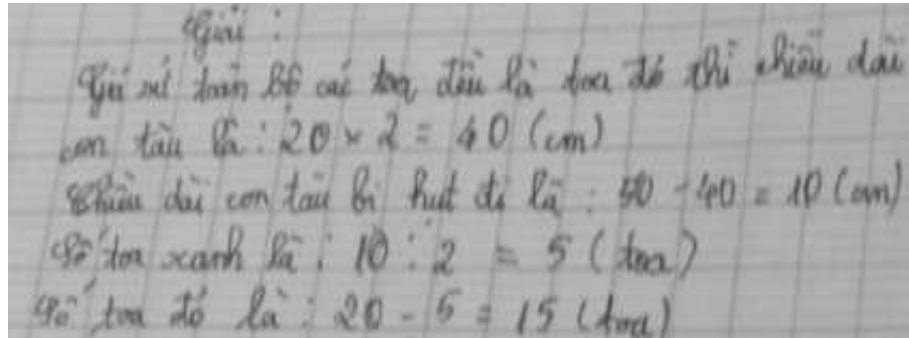 Giải :
Giả sử toàn bộ các toa đều là toa đỏ thì chiều dài
con tàu là : 20 × 2 = 40 (cm)
Chiều dài con tàu bị hụt đi là : 50 - 40 = 10 (cm)
Số toa xanh là : 10 : 2 = 5 (toa)
Số toa đỏ là : 20 - 5 = 15 (toa)